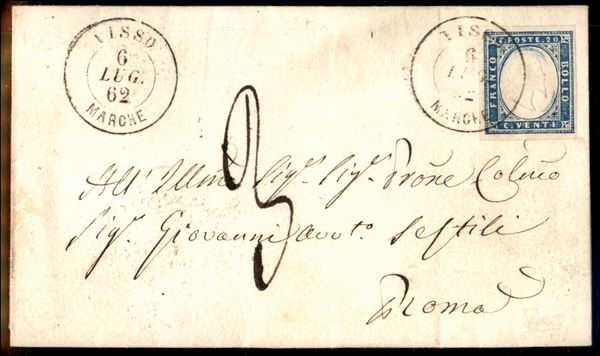 VISSO
6
LUG.
62
MARCHE
VISSO
6
62
MARCHE
C. POSTE. 20
FRANCO
BOLLO
C. VENTI
3
All' Illmo Sigr. Sigr. Prone Colmo
Sigr. Giovanni avvto. Settili
Roma